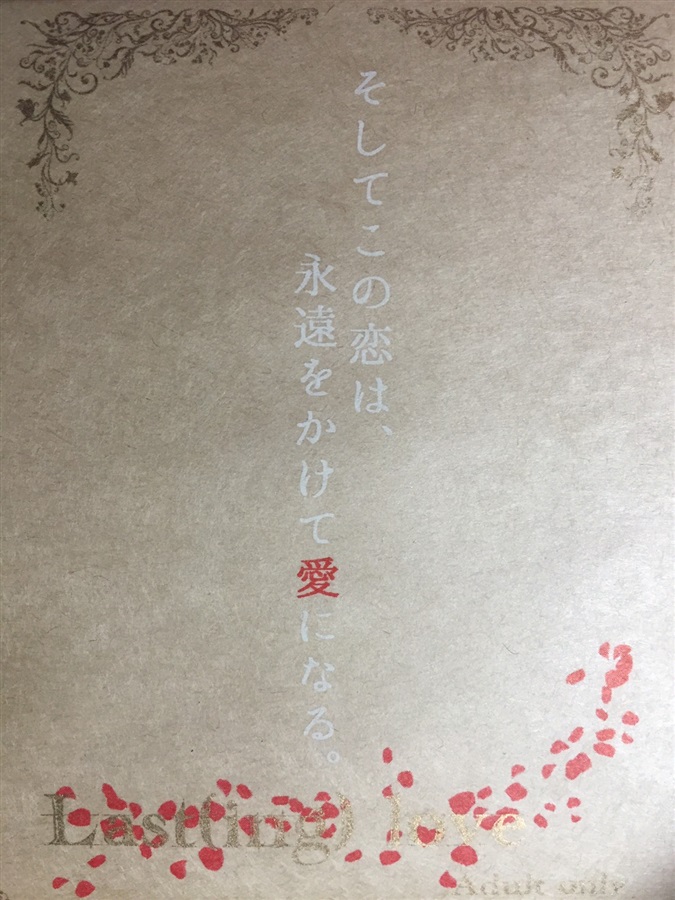 そしてこの恋は、
永遠をかけて愛になる。
Last(ing) love
Adult only